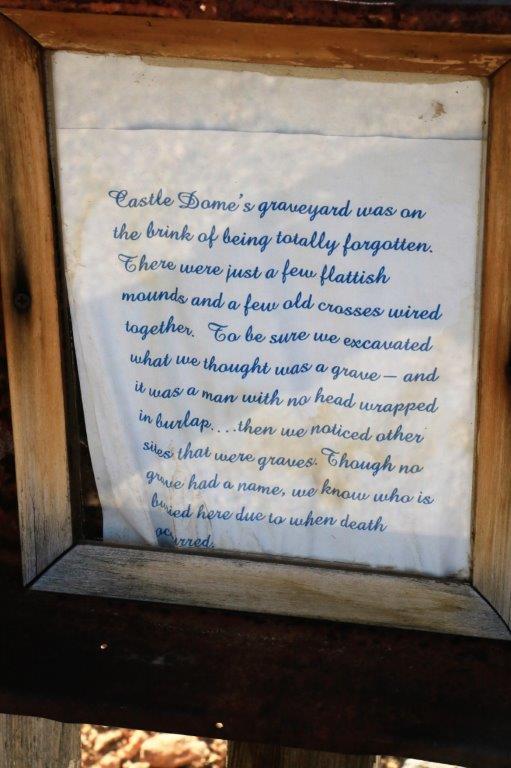 Castle Dome's graveyard was on
the brink of being totally forgotten.
There were just a few flattish
mounds and a few old crosses wired
together. To be sure we excavated
what we thought was a grave — and
it was a man with no head wrapped
in burlap....then we noticed other
sites that were graves. Though no
grave had a name, we know who is
buried here due to when death
ocurred.